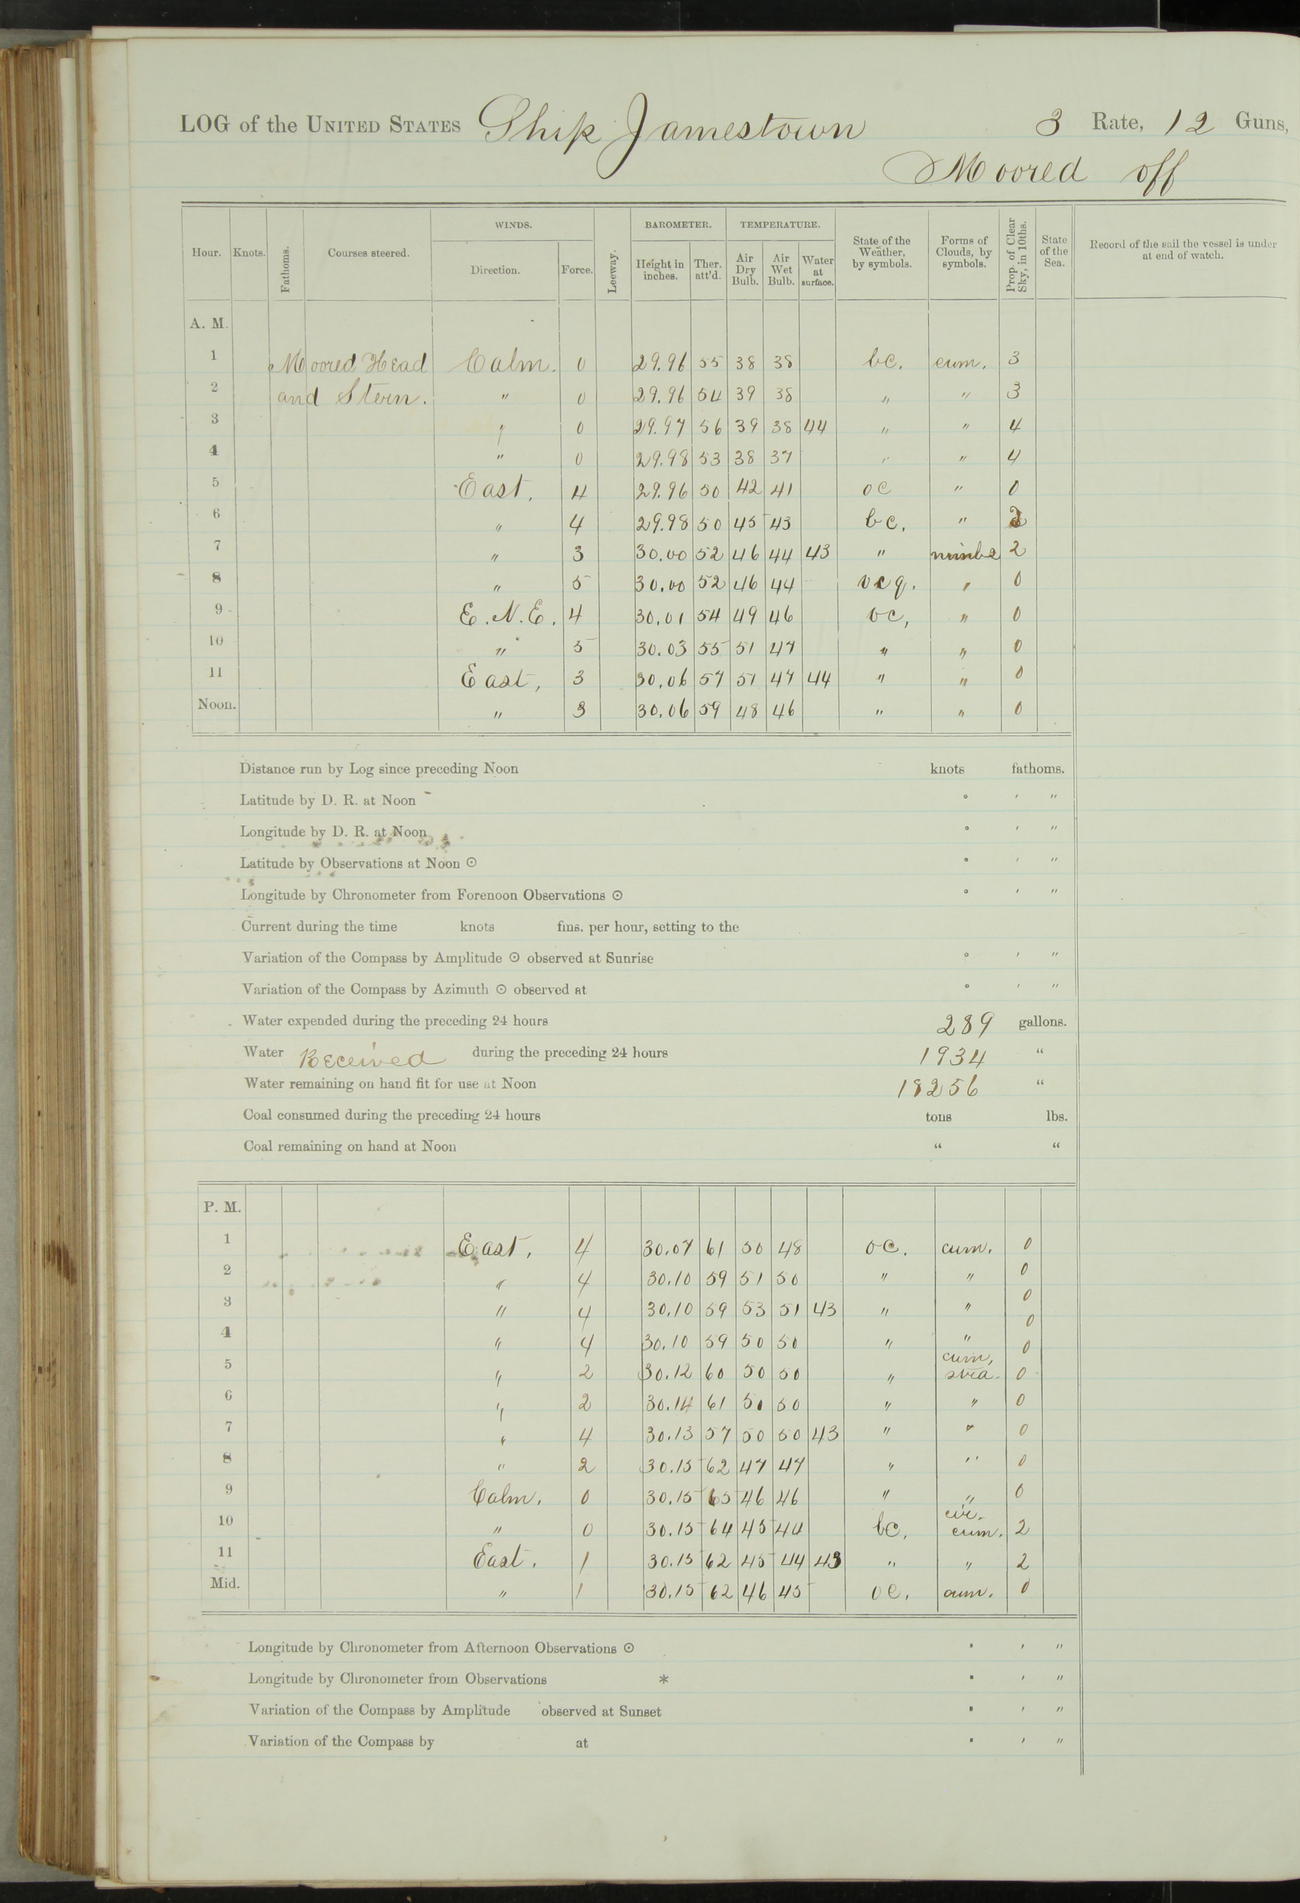 LOG of the UNITED STATES Ship Jamestown 3 Rate, 12 Guns,
Moored off
Hour. Knots. Fathoms. Courses steered. WINDS. Direction. Force. Leeway. BAROMETER. Height in inches. Ther. att'd. TEMPERATURE. Air Dry Bulb. Air Wet Bulb. Water at surface. State of the Weather, by symbols. Forms of Clouds, by symbols. Prop. of Clear Sky, in 10ths. State of the Sea. Record of the sail the vessel is under at end of watch.
A. M.
1 Moored Head Calm. 0 29.96 55 38 38 bc. cum. 3
2 and Stern. " 0 29.96 54 39 38 " " 3
3 " 0 29.97 56 39 38 44 " " 4
4 " 0 29.98 53 38 37 " " 4
5 East. 4 29.96 50 42 41 oc " 0
6 " 4 29.98 50 45 43 bc. " 2
7 " 3 30.00 52 46 44 43 " 2
8 " 5 30.00 52 46 44 ocq. " 0
9 E. N. E. 4 30.01 54 49 46 oc, " 0
10 " 5 30.03 55 51 47 " " 0
11 East, 3 30.06 57 51 47 44 " " 0
Noon. " 3 30.06 59 48 46 " " 0
Distance run by Log since preceding Noon knots fathoms.
Latitude by D. R. at Noon ° ' "
Longitude by D. R. at Noon ° ' "
Latitude by Observations at Noon ⊙ ° ' "
Longitude by Chronometer from Forenoon Observations ⊙ ° ' "
Current during the time knots fms. per hour, setting to the
Variation of the Compass by Amplitude ⊙ observed at Sunrise ° ' "
Variation of the Compass by Azimuth ⊙ observed at ° ' "
Water expended during the preceding 24 hours 289 gallons.
Water Received during the preceding 24 hours 1934 "
Water remaining on hand fit for use at Noon 18256 "
Coal consumed during the preceding 24 hours tons lbs.
Coal remaining on hand at Noon " "
P. M.
1 East, 4 30.07 61 50 48 oc. cum. 0
2 " 4 30.10 59 51 50 " " 0
3 " 4 30.10 59 53 51 43 " " 0
4 " 4 30.10 59 50 50 " " 0
cum,
5 " 2 30.12 60 50 50 " stra. 0
6 " 2 30.14 61 50 50 " " 0
7 " 4 30.13 57 50 50 43 " " 0
8 " 2 30.15 62 47 47 " " 0
9 Calm. 0 30.15 65 46 46 " " 0
cir.
10 " 0 30.15 64 45 44 bc. cum. 2
11 East. 1 30.15 62 45 44 43 " " 2
Mid. " 1 30.15 62 46 45 oc. cum. 0
Longitude by Chronometer from Afternoon Observations ⊙ ° ' "
Longitude by Chronometer from Observations * ° ' "
Variation of the Compass by Amplitude observed at Sunset ° ' "
Variation of the Compass by at ° ' "